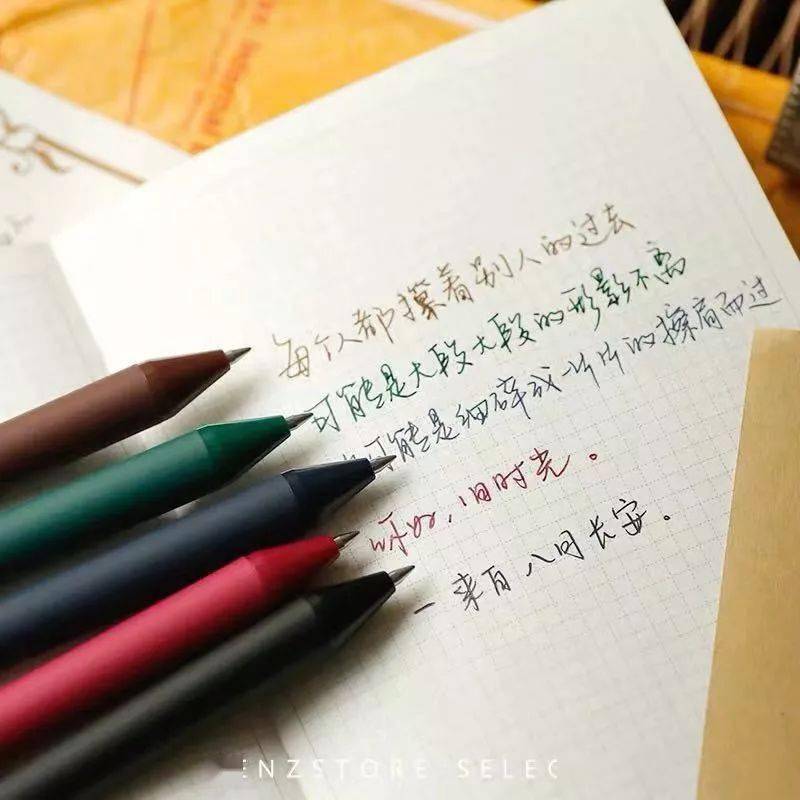 每个人都摸着别人的过去
可能是大段大段的形影不离
可能是细碎成一片片的擦肩而过
你好，旧时光。
一来自八月长安。
ENZSTORE SELEC